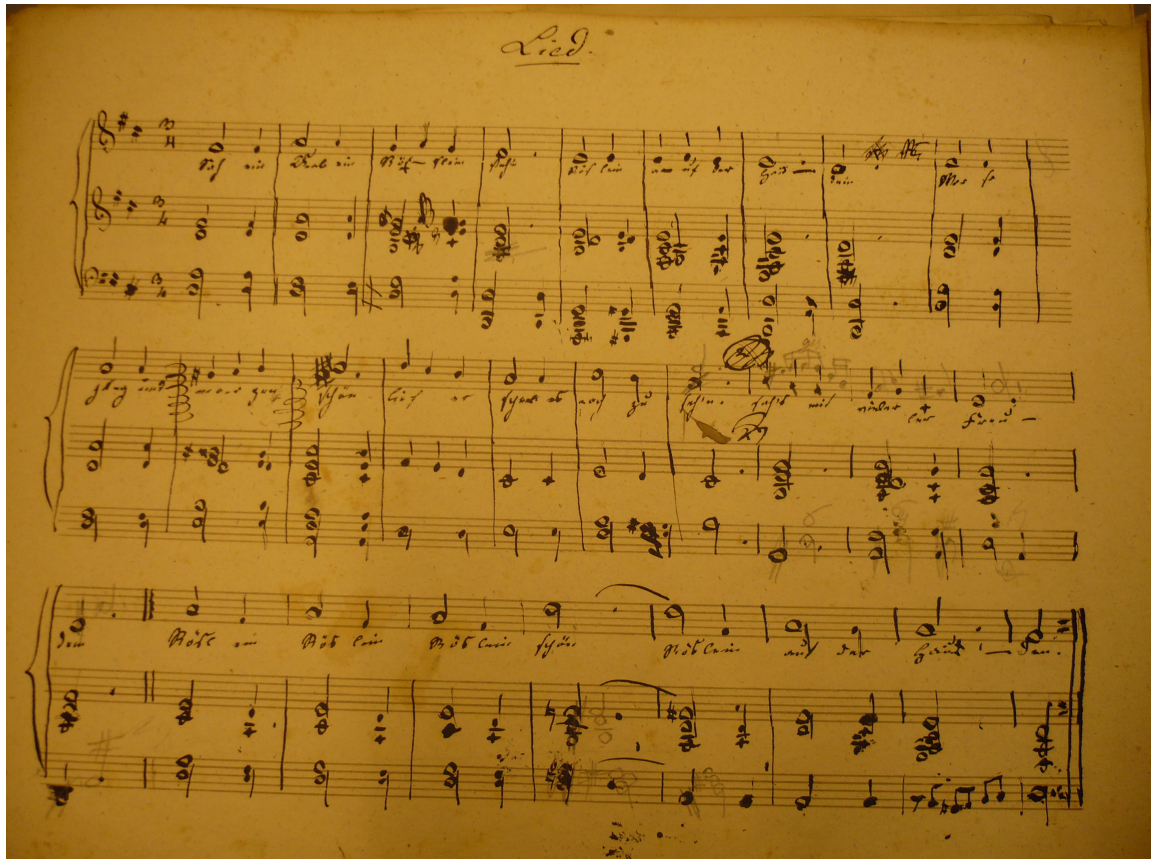 Lied.
3/4 Sah ein Knab ein Röslein stehn Röslein auf der Haiden War so
jung und schön lief er schnell es noch zu sehn. sah's mit vieler Freu-
den Rösl ein Röslein Röslein schön Röslein auf der Haiden.